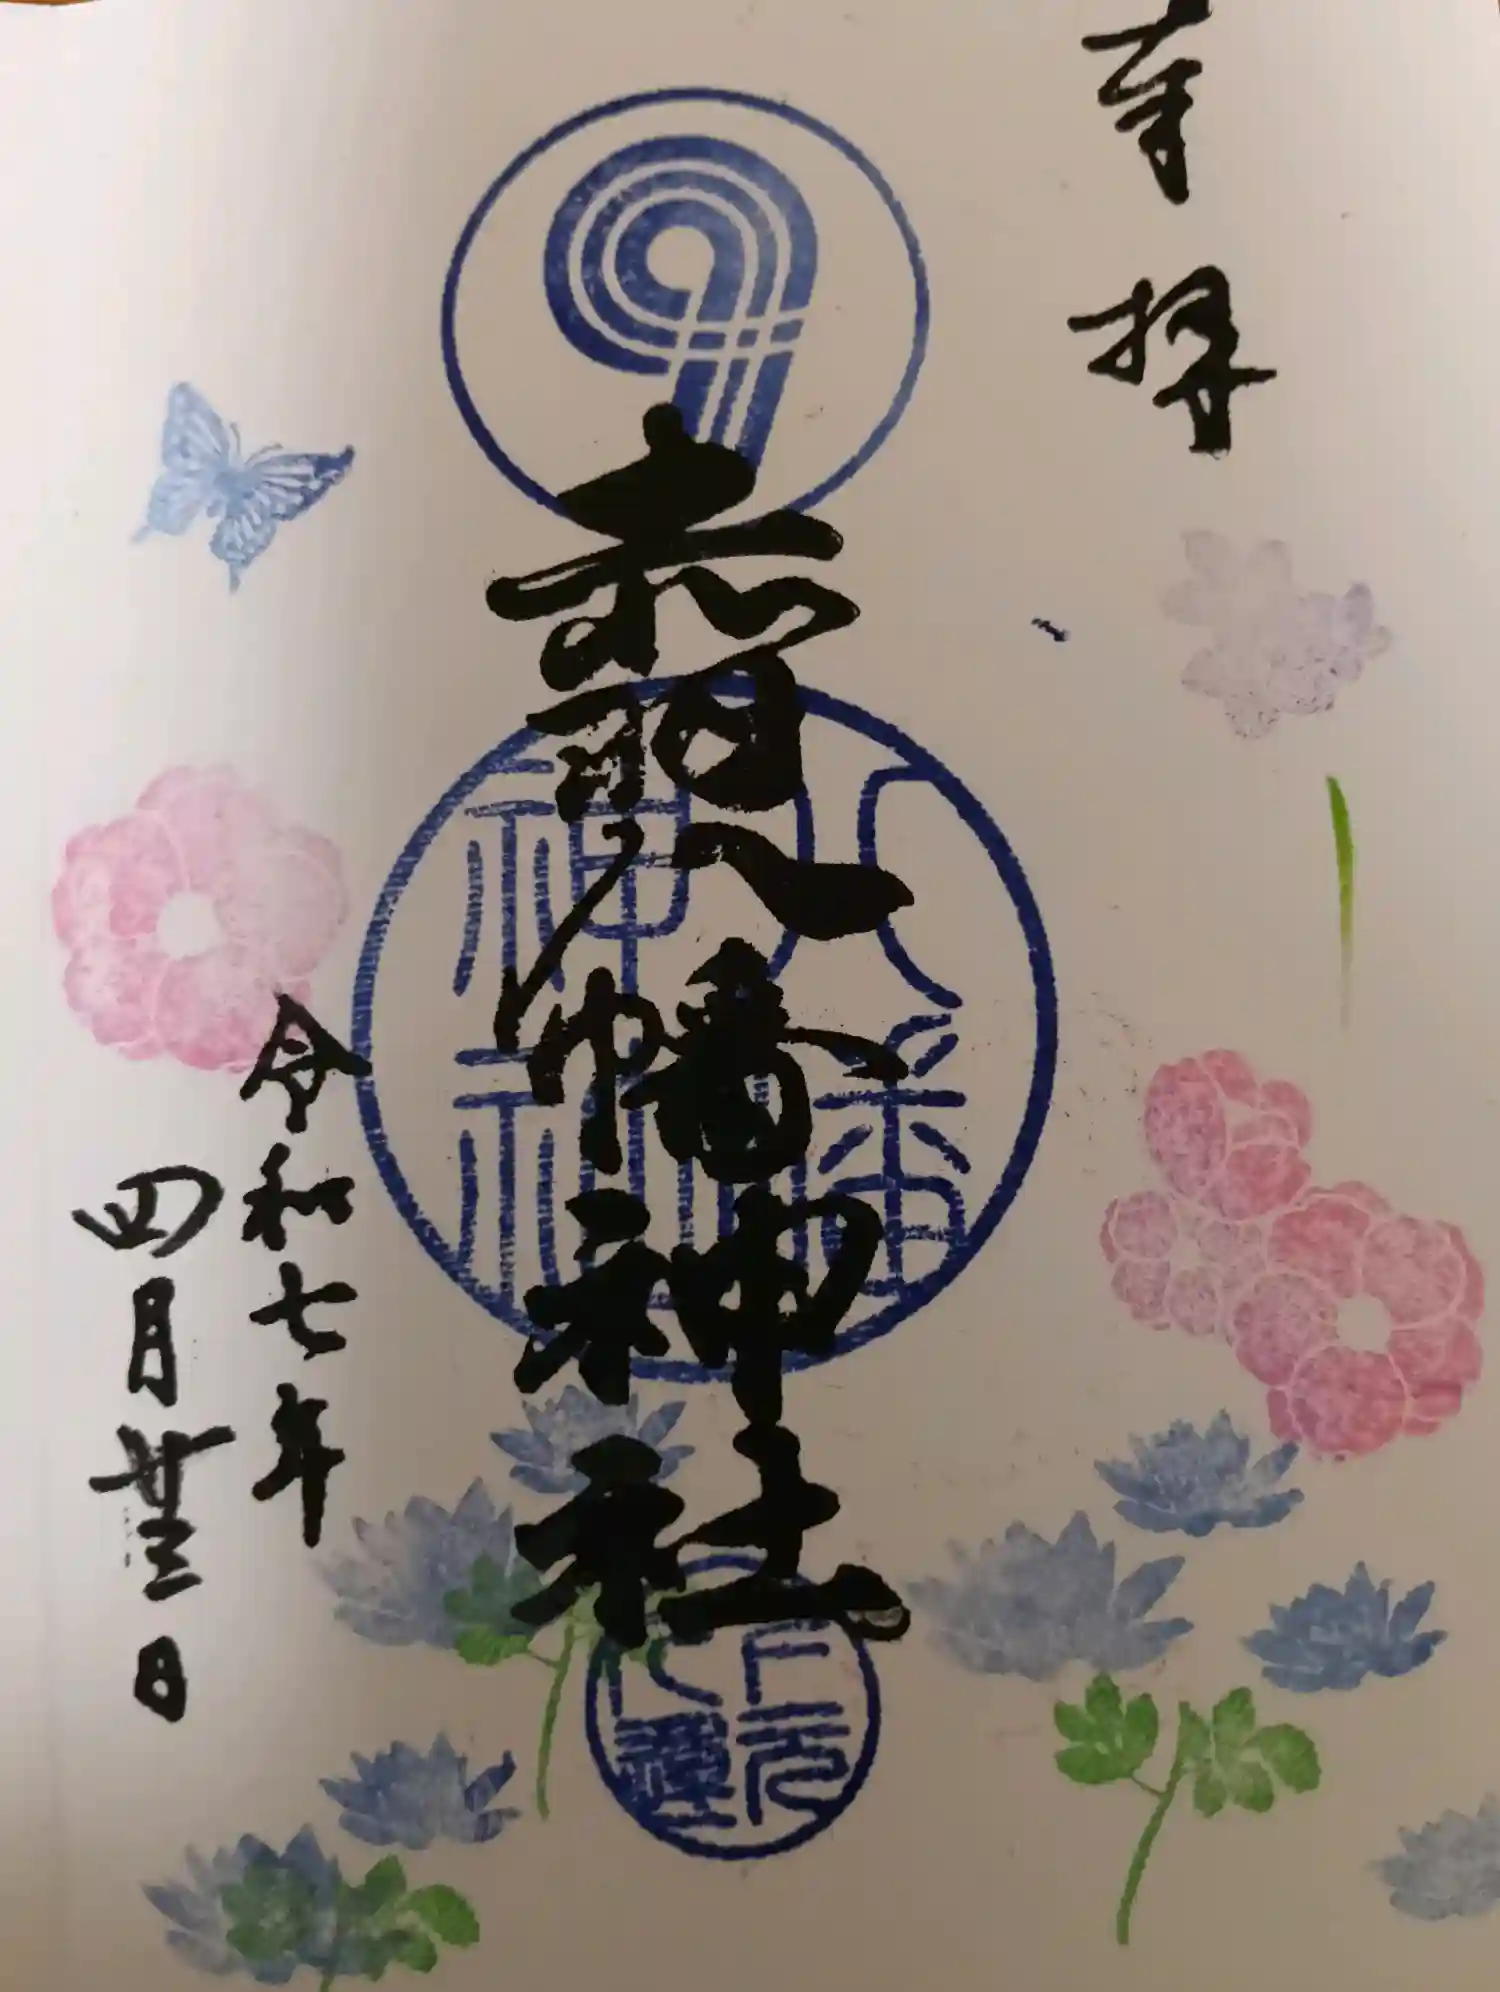 奉拝
赤羽八幡神社
八幡
神社
令和七年
四月廿三日